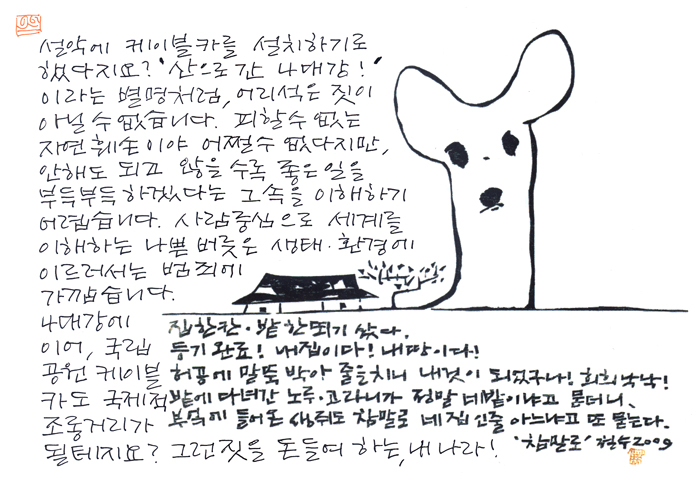 설악에 케이블카를 설치하기로
했다지요? '산으로 간 4대강!'
이라는 별명처럼, 어리석은 짓이
아닐 수 없습니다. 피할 수 없는
자연훼손이야 어쩔 수 없다지만,
안해도 되고 않을 수록 좋은 일을
부득부득 하겠다는 그 속을 이해하기
어렵습니다. 사람중심으로 세계를
이해하는 나쁜 버릇은 생태·환경에
이르러서는 범죄에
가깝습니다.
4대강에
이어, 국립
공원 케이블
카도 국제적
조롱거리가
될테지요? 그런짓을 돈들여 하는, 내 나라!
집 한칸·밭 한뙈기 샀다.
등기 완료! 내집이다! 내땅이다!
허공에 말뚝 박아 줄을치니 내것이 되었구나! 희희낙낙!
밭에 다녀간 노루·고라니가 정말 네밭이냐고 묻더니,
부엌에 들어온 생쥐도 참말로 네집인줄 아느냐고 또 묻는다.
'참말로' 철수2009